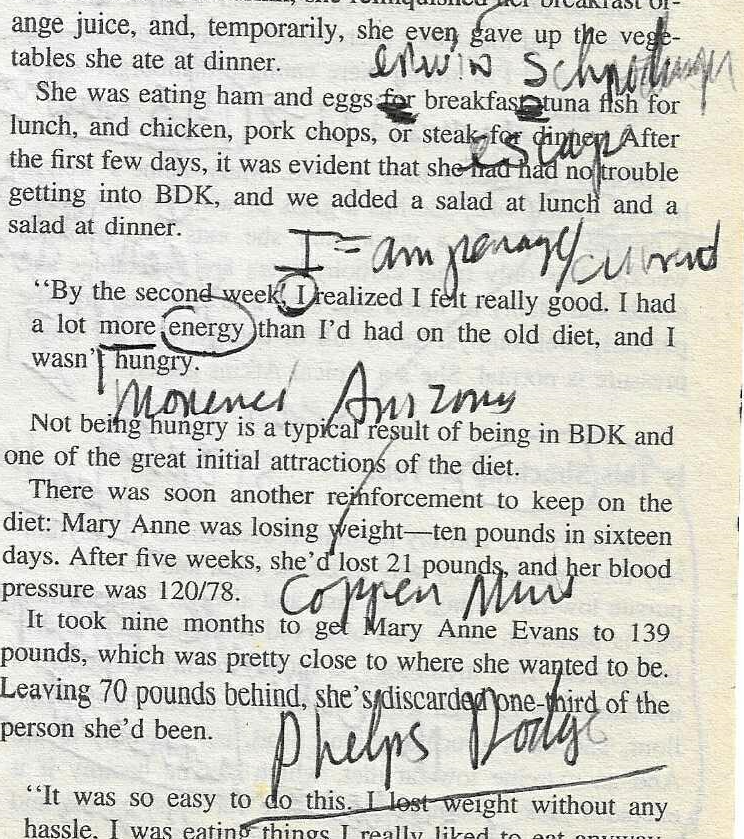 ange juice, and, temporarily, she even gave up the vege-
tables she ate at dinner.
erwin Schrodinger
She was eating ham and eggs for breakfast, tuna fish for
lunch, and chicken, pork chops, or steak for dinner. After
escape
the first few days, it was evident that she had had no trouble
getting into BDK, and we added a salad at lunch and a
salad at dinner.
I = amperage/current
"By the second week, I realized I felt really good. I had
a lot more energy than I'd had on the old diet, and I
wasn't hungry.
Morenci Arizona
Not being hungry is a typical result of being in BDK and
one of the great initial attractions of the diet.
There was soon another reinforcement to keep on the
diet: Mary Anne was losing weight—ten pounds in sixteen
days. After five weeks, she'd lost 21 pounds, and her blood
pressure was 120/78.
Copper Mine
It took nine months to get Mary Anne Evans to 139
pounds, which was pretty close to where she wanted to be.
Leaving 70 pounds behind, she's discarded one-third of the
person she'd been.
Phelps Dodge
"It was so easy to do this. I lost weight without any
hassle. I was eating things I really liked to eat anyway